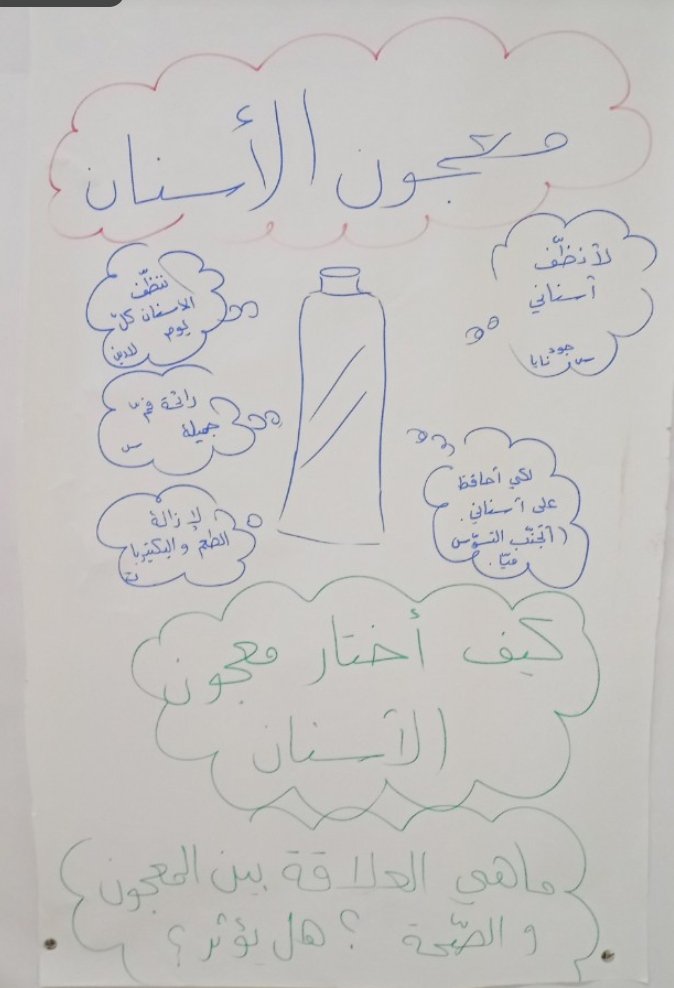 معجون الأسنان
لأنظّف
أسناني
ننظّف
الأسنان كلّ
يوم
رائحة فم
جميلة
لإزالة
الطعم والبكتيريا
لكي أحافظ
على أسناني
أتجنّب التسوّس
كيف أختار معجون
الأسنان
ماهي العلاقة بين المعجون
و الصّحة ؟ هل يؤثر ؟